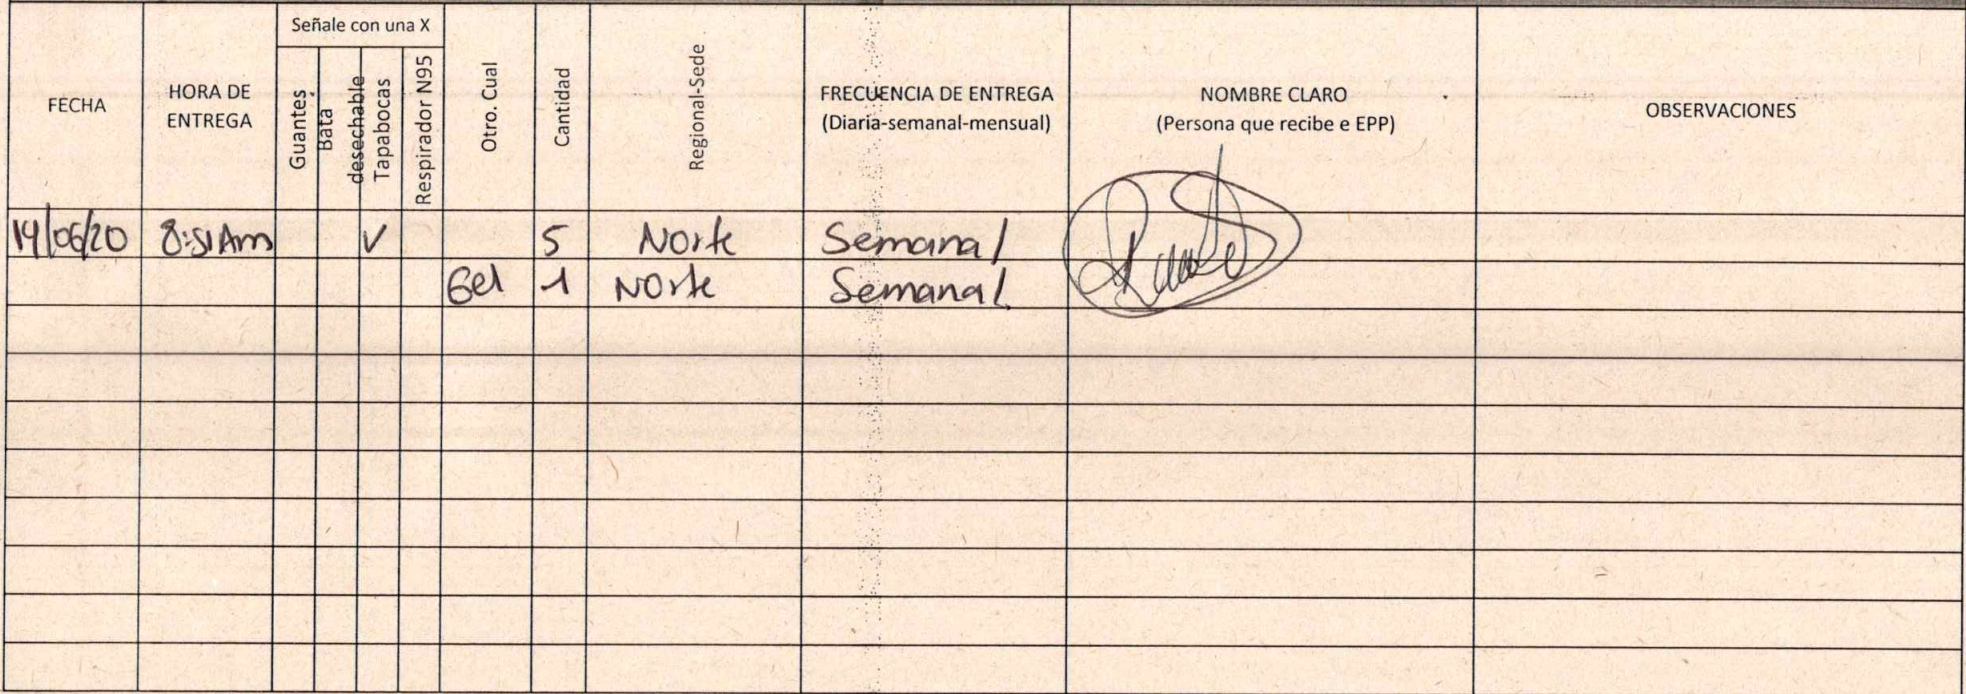 FECHA
HORA DE
ENTREGA
Señale con una X
Guantes
Bata
desechable
Tapabocas
Respirador N95
Otro. Cual
Cantidad
Regional-Sede
FRECUENCIA DE ENTREGA
(Diaria-semanal-mensual)
NOMBRE CLARO
(Persona que recibe e EPP)
OBSERVACIONES
14/06/20 8:51Am V 5 Norte Semanal
Gel 1 Norte Semanal